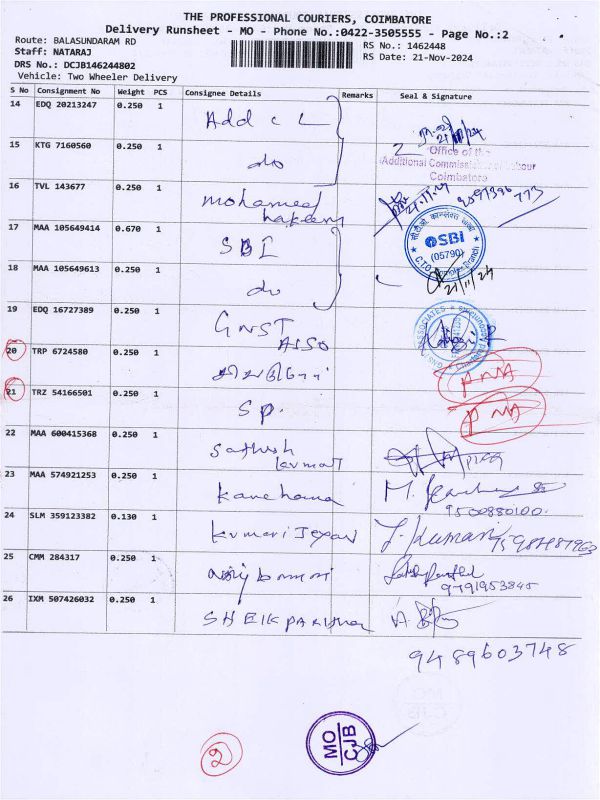 THE PROFESSIONAL COURIERS, COIMBATORE
Delivery Runsheet - MO - Phone No.:0422-3505555 - Page No.:2
Route: BALASUNDARAM RD
RS No.: 1462448
Staff: NATARAJ
RS Date: 21-Nov-2024
DRS No.: DCJB146244802
Vehicle: Two Wheeler Delivery
S No Consignment No Weight PCS Consignee Details Remarks Seal & Signature
14 EDQ 20213247 0.250 1 Add c L
15 KTG 7160560 0.250 1 do
Office of the
Additional Commissioner of Labour
Coimbatore
16 TVL 143677 0.250 1 mohamed
hakeem
21.11.24
17 MAA 105649414 0.670 1 SBI
SBI
(05790)
18 MAA 105649613 0.250 1 do
21/11/24
19 EDQ 16727389 0.250 1 GNST
ASSO
20 TRP 6724580 0.250 1
PNA
21 TRZ 54166501 0.250 1 SP.
PNA
22 MAA 600415368 0.250 1 Sathish
kumar
23 MAA 574921253 0.250 1 Kanchana
9500880100
24 SLM 359123382 0.130 1 kumari Jeyan
J. Kumari
25 CMM 284317 0.250 1
9791953845
26 IXM 507426032 0.250 1 SHEIK
9489603748
2
MO
CJB